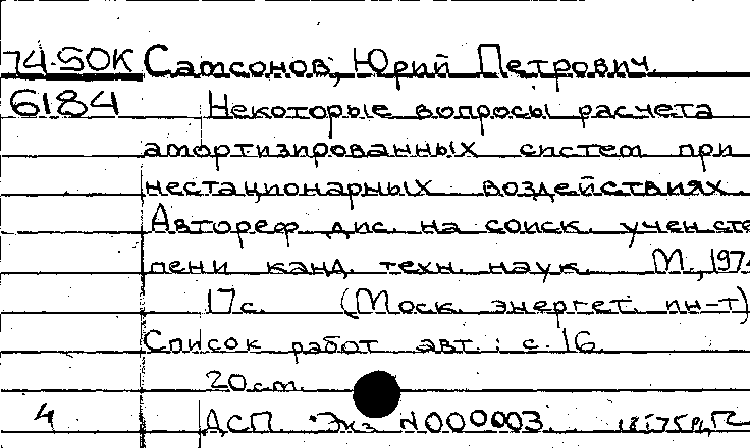 74-50К Самсонов, Юрий Петрович.
6184 Некоторые вопросы расчета
амортизированных систем при
нестационарных воздействиях.
Автореф. дис. на соиск. учен. сте
пени канд. техн. наук. М., 197
17с. (Моск. энергет. ин-т)
Список работ авт.: с. 16
20см.
4 ДСП. Экз N000003.